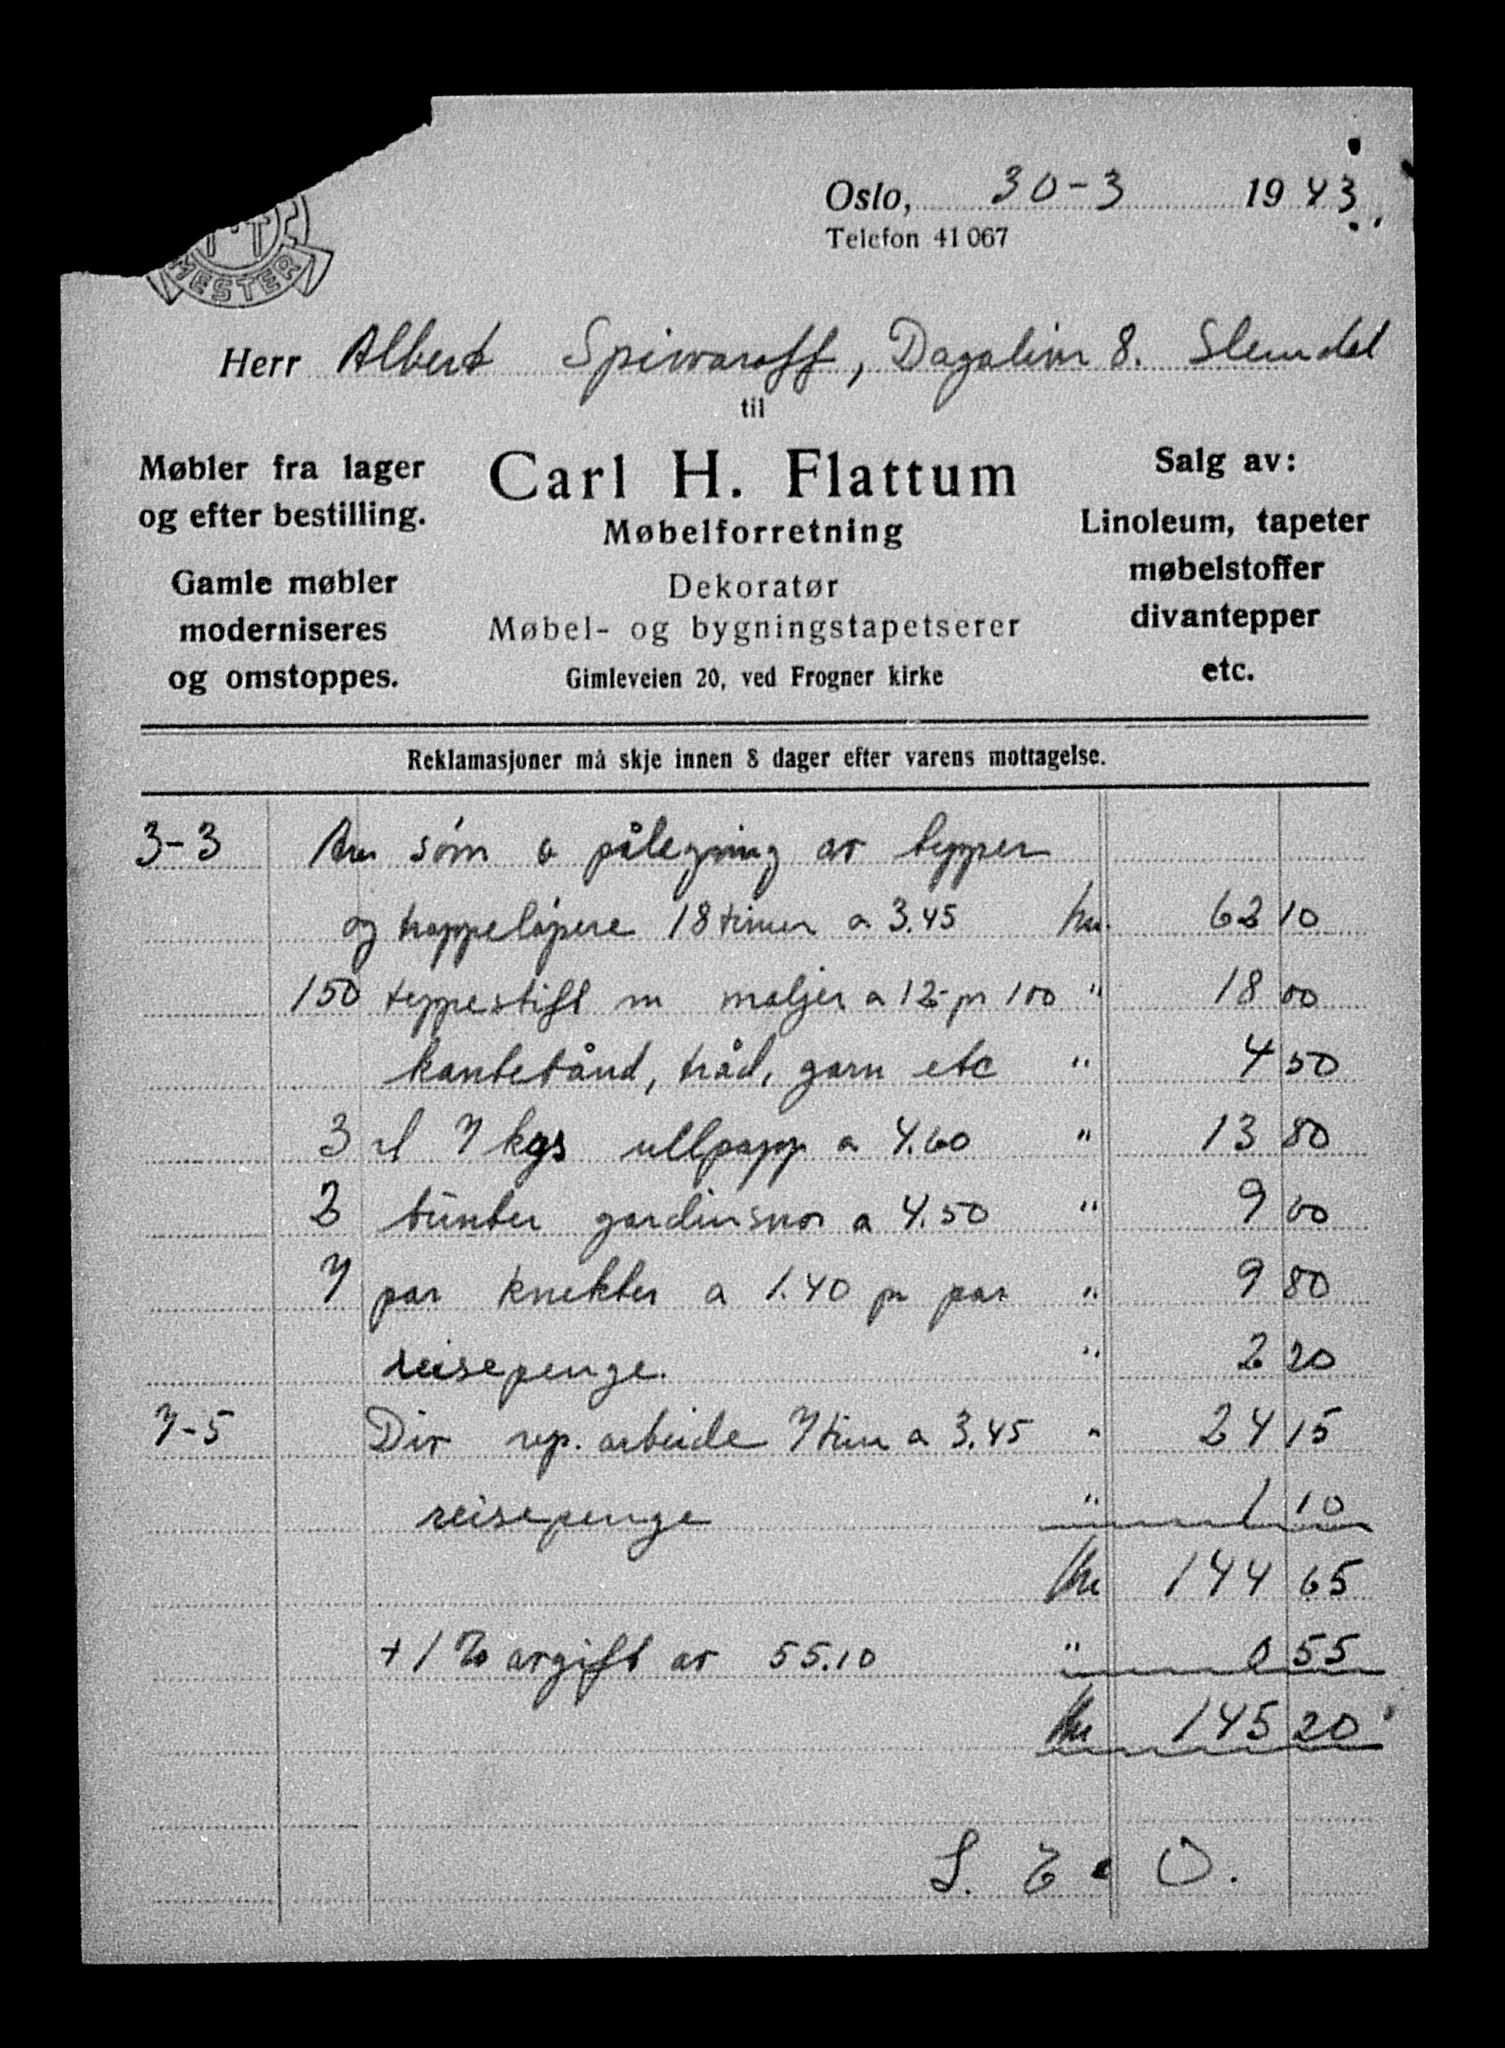 MESTER
Oslo, 30-3 1943.
Telefon 41 067
Herr Albert Spiwaroff, Dagalivn 8. Slemdal
til
Carl H. Flattum
Møbelforretning
Dekoratør
Møbel- og bygningstapetserer
Gimleveien 20, ved Frogner kirke
Møbler fra lager
og efter bestilling.
Gamle møbler
moderniseres
og omstoppes.
Salg av:
Linoleum, tapeter
møbelstoffer
divantepper
etc.
Reklamasjoner må skje innen 8 dager efter varens mottagelse.
3-3 søm o pålegning av tepper
og trappeløpere 18 timer a 3.45 kr. 62 10
150 teppestift m maljer a 12- pr 100 " 18 00
kantebånd, tråd, garn etc " 4 50
3 rl 7 kgs ullpapp a 4.60 " 13 80
2 bunter gardinsnor a 4.50 " 9 00
7 par knekter a 1.40 pr par " 9 80
reisepenge. " 2 20
7-5 Div rep. arbeide 7 tim a 3.45 " 24 15
reisepenge " 1 10
Kr 144 65
+ 1 % avgift av 55.10 " 0 55
Kr 145 20
S. E. O.